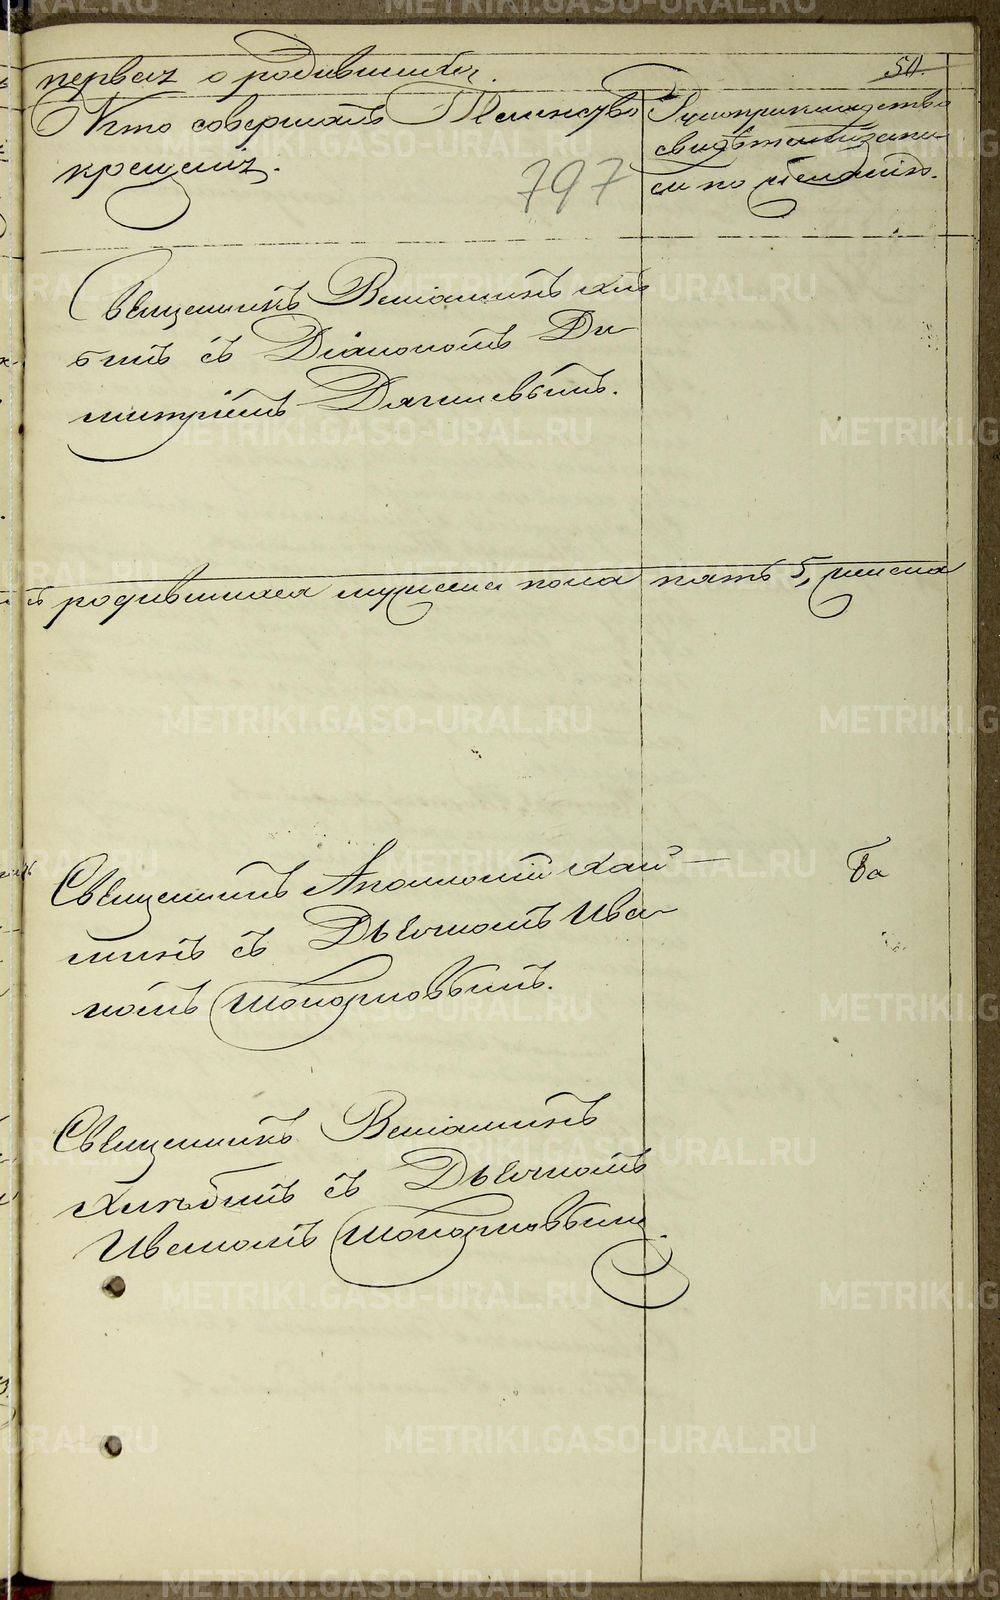 первая о родившихся.
50.
Кто совершалъ Таинство
крещенія.
797
Рукоприкладство
свидѣтелей записи
по желанію.
Священникъ Веніаминъ Хлѣ
бинъ съ Діакономъ Ди
митріемъ Дягилевымъ.
родившихся мужеска пола пять 5, женска
Священникъ Аполлоній
съ Дьячкомъ Ива
номъ Топорковымъ.
Священникъ Веніаминъ
Хлѣбинъ съ Дьячкомъ
Иваномъ Топорковымъ.
METRIKI.GASO-URAL.RU